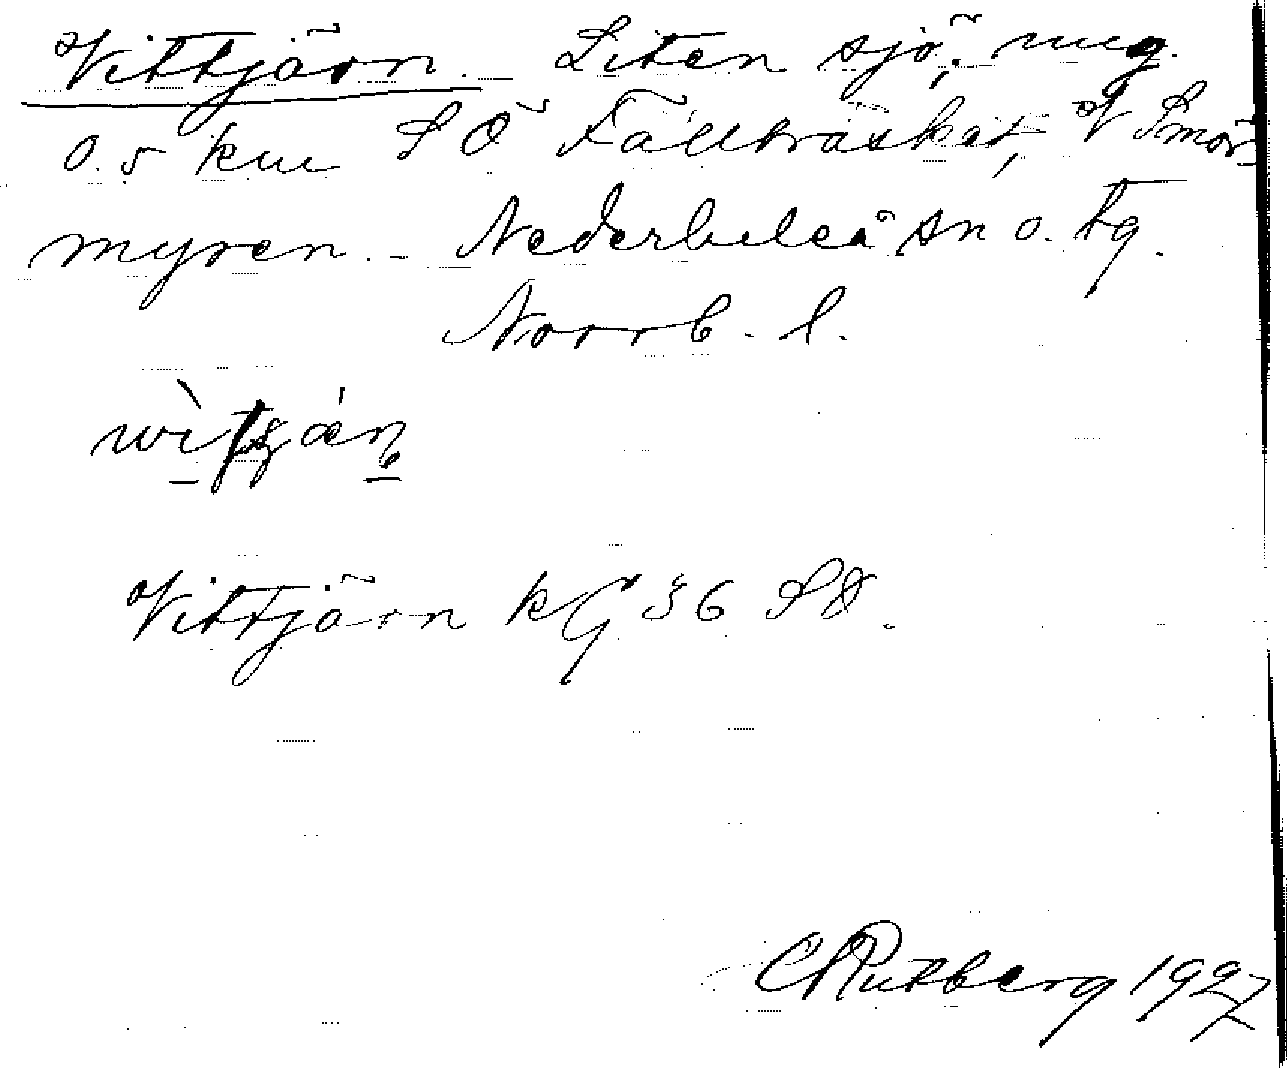 Vittjärn. Liten sjö; ung.
0.5 km SÖ Fällträsket, V Smör
myren. - Nederluleå sn o. tg.
Norrb. l.
Vittjärn kG 36 SD.
C Rutberg 1927